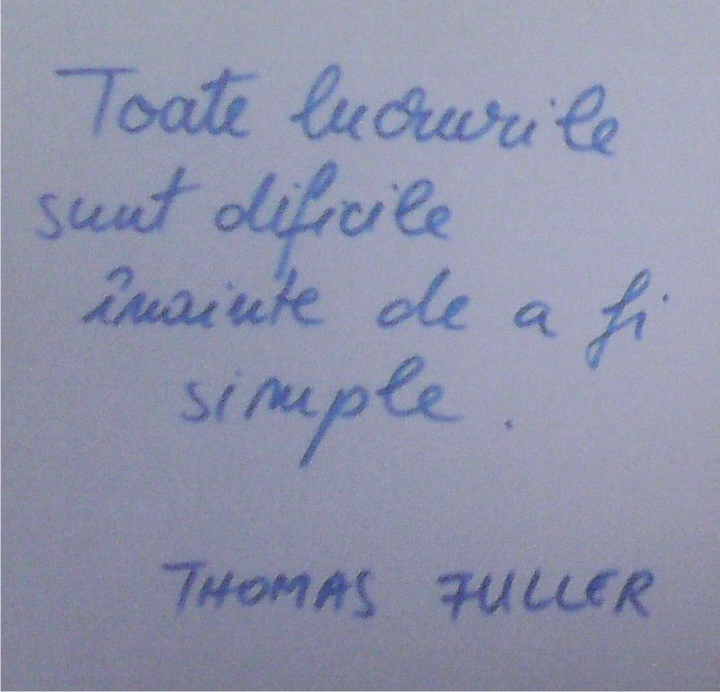 Toate lucrurile
sunt dificile
înainte de a fi
simple.
THOMAS FULLER